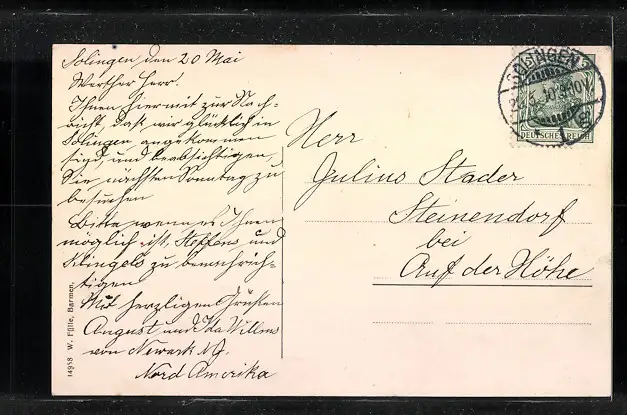 Solingen, den 20 Mai
Werther Herr!
Ihnen hiermit zur Nach-
richt, dass wir glücklich in
Solingen angekommen
sind, und beabsichtigen,
Sie nächsten Sonntag zu
besuchen
Bitte wenn es Ihnen
möglich ist, Steffens und
Klingels zu benachrich-
tigen
Mit herzligen Grüßen
August und Ida Willms
von Newark N.J.
Nord Amerika
Herr
Julius Stader
Steinendorf
bei
Auf der Höhe
SOLINGEN
DEUTSCHES REICH
14958 W. Fülle, Barmen.